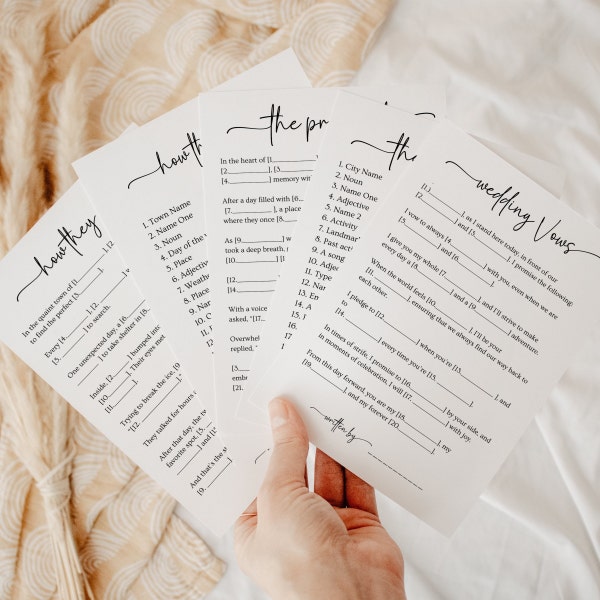 how they
In the quaint town of [1.
to find the perfect [3.
Every [4.________], [2.
[5.________] to search.
One unexpected day, a [6.
[7.________] to take shelter in [8.
Inside, [2.________] bumped into
[10.________]. Their eyes met
[11.________].
Trying to break the ice, [9
"[12.
They talked for hours
After that day, the tw
favorite spot, [5.
[1.________] and [1
And that's the s
[9.________].
how th
1. Town Name
2. Name One
3. Noun
4. Day of the
5. Place
6. Adjectiv
7. Weathe
8. Place
9. Name
10. Adj
the pr
In the heart of [1.________]
[2.________], [3.________]
[4.________] memory wit
After a day filled with [6.
[7.________], a place
where they once [8.
As [9.________]
took a deep breath,
[10.________]
[12.________]
[14.
With a voice
asked, "[17.
Overwhel
replied, "
[3.
emb
[21.
th
1. City Name
2. Noun
3. Name One
4. Adjective
5. Name 2
6. Activity
7. Landmar
8. Past acti
9. A song
10. Adj
11. Type
12. Nam
13. Em
14. A
15.
16.
17.
18
wedding Vows
[1.________], as I stand here today, in front of our
[2.________] and [3.________], I promise the following:
I vow to always [4.________] with you, even when we are
[5.________].
I give you my whole [7.________], and I'll strive to make
every day a [8.________] and a [9.________] adventure.
When the world feels [10.________], I'll be your
[11.________], ensuring that we always find our way back to
each other.
I pledge to [12.________] when you're [13.________], and
to [14.________] every time you're [15.________].
In times of strife, I promise to [16.________] by your side, and
in moments of celebration, I will [17.________] with joy.
From this day forward, you are my [18.________], my
[19.________], and my forever [20.________].
written by